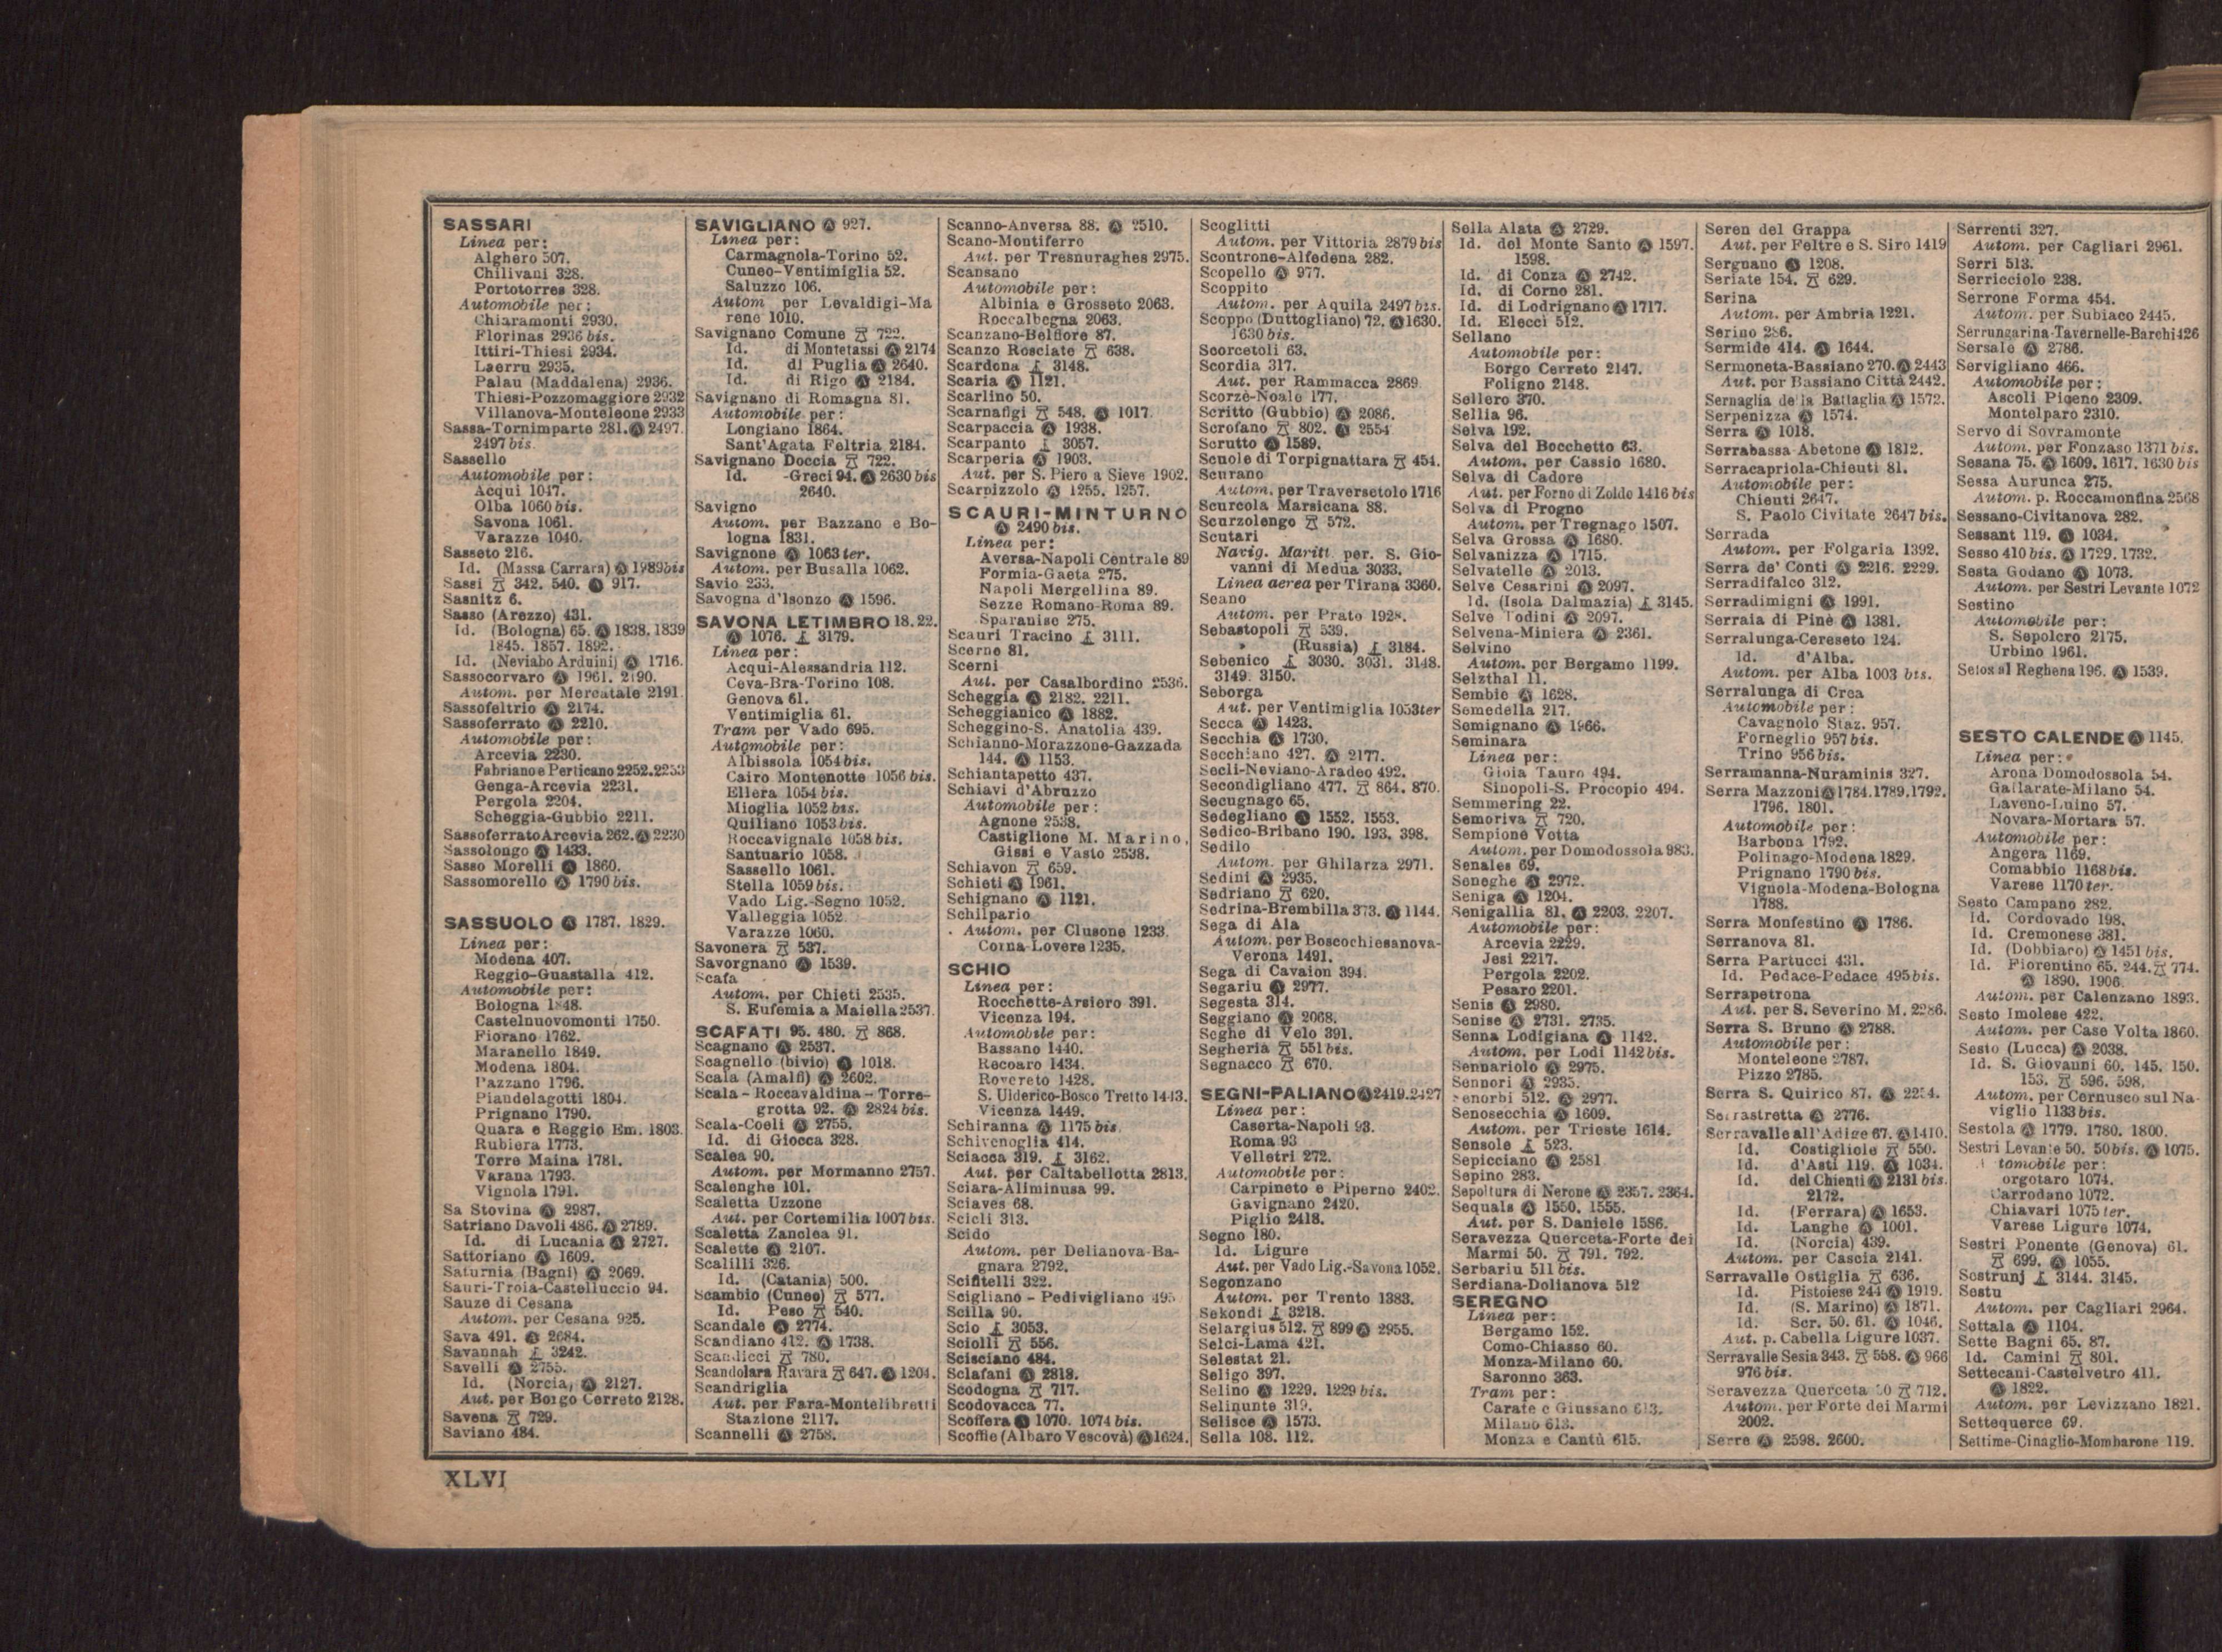 SASSARI
Linea per:
Alghero 507.
Chilivani 328.
Portotorres 328.
Automobile per:
Chiaramonti 2930.
Florinas 2936 bis.
Ittiri-Thiesi 2934.
Laerru 2935.
Palau (Maddalena) 2936.
Thiesi-Pozzomaggiore 2932
Villanova-Monteleone 2933
Sassa-Tornimparte 281. Ⓐ 2497.
2497 bis.
Sassello
Automobile per:
Acqui 1047.
Olba 1060 bis.
Savona 1061.
Varazze 1040.
Sasseto 216.
Id. (Massa Carrara) Ⓐ 1989 bis
Sassi 342. 540. Ⓐ 917.
Sasnitz 6.
Sasso (Arezzo) 431.
Id. (Bologna) 65. Ⓐ 1838. 1839
1845. 1857. 1892.
Id. (Neviano Arduini) Ⓐ 1716.
Sassocorvaro Ⓐ 1961. 2190.
Autom. per Mercatale 2191.
Sassofeltrio Ⓐ 2174.
Sassoferrato Ⓐ 2210.
Automobile per:
Arcevia 2230.
Fabriano e Perticano 2252. 2253
Genga-Arcevia 2231.
Pergola 2204.
Scheggia-Gubbio 2211.
Sassoferrato Arcevia 262. Ⓐ 2230
Sassolongo Ⓐ 1433.
Sasso Morelli Ⓐ 1860.
Sassomorello Ⓐ 1790 bis.
SASSUOLO Ⓐ 1787. 1829.
Linea per:
Modena 407.
Reggio-Guastalla 412.
Automobile per:
Bologna 1848.
Castelnuovomonti 1750.
Fiorano 1762.
Maranello 1849.
Modena 1804.
Pazzano 1796.
Piandelagotti 1804.
Prignano 1790.
Quara e Reggio Em. 1803.
Rubiera 1773.
Torre Maina 1781.
Varana 1793.
Vignola 1791.
Sa Stovina Ⓐ 2987.
Satriano Davoli 486. Ⓐ 2789.
Id. di Lucania Ⓐ 2727.
Sattoriano Ⓐ 1609.
Saturnia (Bagni) Ⓐ 2069.
Sauri-Troia-Castelluccio 94.
Sauze di Cesana
Autom. per Cesana 925.
Sava 491. Ⓐ 2684.
Savannah 3242.
Savelli Ⓐ 2755.
Id. (Norcia) Ⓐ 2127.
Aut. per Borgo Cerreto 2128.
Savena 729.
Saviano 484.
SAVIGLIANO Ⓐ 927.
Linea per:
Carmagnola-Torino 52.
Cuneo-Ventimiglia 52.
Saluzzo 106.
Autom per Levaldigi-Ma
rene 1010.
Savignano Comune 722.
Id. di Montetassi Ⓐ 2174
Id. di Puglia Ⓐ 2640.
Id. di Rigo Ⓐ 2184.
Savignano di Romagna 81.
Automobile per:
Longiano 1864.
Sant'Agata Feltria 2184.
Savignano Doccia 722.
Id. -Greci 94. Ⓐ 2630 bis
2640.
Savigno
Autom. per Bazzano e Bo-
logna 1831.
Savignone Ⓐ 1063 ter.
Autom. per Busalla 1062.
Savio 233.
Savogna d'Isonzo Ⓐ 1596.
SAVONA LETIMBRO 18. 22.
Ⓐ 1076. 3179.
Linea per:
Acqui-Alessandria 112.
Ceva-Bra-Torino 108.
Genova 61.
Ventimiglia 61.
Tram per Vado 695.
Automobile per:
Albissola 1054 bis.
Cairo Montenotte 1056 bis.
Ellera 1054 bis.
Mioglia 1052 bis.
Quiliano 1053 bis.
Roccavignale 1058 bis.
Santuario 1058.
Sassello 1061.
Stella 1059 bis.
Vado Lig.-Segno 1052.
Valleggia 1052
Varazze 1060.
Savonera 537.
Savorgnano Ⓐ 1539.
Scafa
Autom. per Chieti 2535.
S. Eufemia a Maiella 2537.
SCAFATI 95. 480. 868.
Scagnano Ⓐ 2537.
Scagnello (bivio) Ⓐ 1018.
Scala (Amalfi) Ⓐ 2602.
Scala - Roccavaldina - Torre-
grotta 92. Ⓐ 2824 bis.
Scala-Coeli Ⓐ 2755.
Id. di Giocca 328.
Scalea 90.
Autom. per Mormanno 2757.
Scalenghe 101.
Scaletta Uzzone
Aut. per Cortemilia 1007 bis.
Scaletta Zanclea 91.
Scalette Ⓐ 2107.
Scalilli 326.
Id. (Catania) 500.
Scambio (Cuneo) 577.
Id. Peso 540.
Scandale Ⓐ 2774.
Scandiano 412. Ⓐ 1738.
Scandicci 780.
Scandolara Ravara 647. Ⓐ 1204.
Scandriglia
Aut. per Fara-Montelibretti
Stazione 2117.
Scannelli Ⓐ 2758.
Scanno-Anversa 88. Ⓐ 2510.
Scano-Montiferro
Aut. per Tresnuraghes 2975.
Scansano
Automobile per:
Albinia e Grosseto 2063.
Roccalbegna 2063.
Scanzano-Belfiore 87.
Scanzo Rosciate 638.
Scardona 3148.
Scaria Ⓐ 1121.
Scarlino 50.
Scarnafigi 548. Ⓐ 1017.
Scarpaccia Ⓐ 1938.
Scarpanto 3057.
Scarperia Ⓐ 1903.
Aut. per S. Piero a Sieve 1902.
Scarpizzolo Ⓐ 1255. 1257.
SCAURI-MINTURNO
Ⓐ 2490 bis.
Linea per:
Aversa-Napoli Centrale 89
Formia-Gaeta 275.
Napoli Mergellina 89.
Sezze Romano-Roma 89.
Sparanise 275.
Scauri Tracino 3111.
Scerne 81.
Scerni
Aut. per Casalbordino 2536.
Scheggia Ⓐ 2182. 2211.
Scheggianico Ⓐ 1882.
Scheggino-S. Anatolia 439.
Schianno-Morazzone-Gazzada
144. Ⓐ 1153.
Schiantapetto 437.
Schiavi d'Abruzzo
Automobile per:
Agnone 2538.
Castiglione M. Marino,
Gissi e Vasto 2538.
Schiavon 659.
Schieti Ⓐ 1961.
Schignano Ⓐ 1121.
Schilpario
Autom. per Clusone 1233.
Corna Lovere 1235.
SCHIO
Linea per:
Rocchette-Arsiero 391.
Vicenza 194.
Automobile per:
Bassano 1440.
Recoaro 1434.
Rovereto 1428.
S. Ulderico-Bosco Tretto 1443.
Vicenza 1449.
Schiranna Ⓐ 1175 bis
Schivenoglia 414.
Sciacca 319. 3162.
Aut. per Caltabellotta 2813.
Sciara-Aliminusa 99.
Sciaves 68.
Scicli 313.
Scido
Autom. per Delianova-Ba-
gnara 2792.
Scifitelli 322.
Scigliano - Pedivigliano 495
Scilla 90.
Scio 3053.
Sciolli 556.
Scisciano 484.
Sclafani Ⓐ 2818.
Scodogna 717.
Scodovacca 77.
Scoffera Ⓐ 1070. 1074 bis.
Scoffie (Albaro Vescovà) Ⓐ 1624.
Scoglitti
Autom. per Vittoria 2879 bis
Scontrone-Alfedena 282.
Scopello Ⓐ 977.
Scoppito
Autom. per Aquila 2497 bis.
Scoppo (Duttogliano) 72. Ⓐ 1630.
1630 bis.
Scorcetoli 63.
Scordia 317.
Aut. per Rammacca 2869
Scorzè-Noale 177.
Scritto (Gubbio) Ⓐ 2086.
Scrofano 802. Ⓐ 2554
Scrutto Ⓐ 1589.
Scuole di Torpignattara 454.
Scurano
Autom. per Traversetolo 1716
Scurcola Marsicana 88.
Scurzolengo 572.
Scutari
Navig. Maritt. per. S. Gio-
vanni di Medua 3033.
Linea aerea per Tirana 3360.
Seano
Autom. per Prato 1928.
Sebastopoli 539.
» (Russia) 3184.
Sebenico 3030. 3031. 3148.
3149. 3150.
Seborga
Aut. per Ventimiglia 1053 ter
Secca Ⓐ 1423.
Secchia Ⓐ 1730.
Secchiano 427. Ⓐ 2177.
Seclì-Neviano-Aradeo 492.
Secondigliano 477. 864. 870.
Secugnago 65.
Sedegliano Ⓐ 1552. 1553.
Sedico-Bribano 190. 193. 398.
Sedilo
Autom. per Ghilarza 2971.
Sedini Ⓐ 2935.
Sedriano 620.
Sedrina-Brembilla 373. Ⓐ 1144.
Sega di Ala
Autom. per Boscochiesanova-
Verona 1491.
Sega di Cavaion 394.
Segariu Ⓐ 2977.
Segesta 314.
Seggiano Ⓐ 2068.
Seghe di Velo 391.
Segheria 551 bis.
Segnacco 670.
SEGNI-PALIANO Ⓐ 2419. 2427
Linea per:
Caserta-Napoli 93.
Roma 93
Velletri 272.
Automobile per:
Carpineto e Piperno 2402.
Gavignano 2420.
Piglio 2418.
Segno 180.
Id. Ligure
Aut. per Vado Lig.-Savona 1052.
Segonzano
Autom. per Trento 1383.
Sekondi 3218.
Selargius 512. 899 Ⓐ 2955.
Selci-Lama 421.
Selestat 21.
Seligo 397.
Selino Ⓐ 1229. 1229 bis.
Selinunte 319.
Selisce Ⓐ 1573.
Sella 108. 112.
Sella Alata Ⓐ 2729.
Id. del Monte Santo Ⓐ 1597.
1598.
Id. di Conza Ⓐ 2742.
Id. di Corno 281.
Id. di Lodrignano Ⓐ 1717.
Id. Elecci 512.
Sellano
Automobile per:
Borgo Cerreto 2147.
Foligno 2148.
Sellero 370.
Sellia 96.
Selva 192.
Selva del Bocchetto 63.
Autom. per Cassio 1680.
Selva di Cadore
Aut. per Forno di Zoldo 1416 bis
Selva di Progno
Autom. per Tregnago 1507.
Selva Grossa Ⓐ 1680.
Selvanizza Ⓐ 1715.
Selvatelle Ⓐ 2013.
Selve Cesarini Ⓐ 2097.
Id. (Isola Dalmazia) 3145.
Selve Todini Ⓐ 2097.
Selvena-Miniera Ⓐ 2361.
Selvino
Autom. per Bergamo 1199.
Selzthal 11.
Sembie Ⓐ 1628.
Semedella 217.
Semignano Ⓐ 1966.
Seminara
Linea per:
Gioia Tauro 494.
Sinopoli-S. Procopio 494.
Semmering 22.
Semoriva 720.
Sempione Vetta
Autom. per Domodossola 983.
Senales 69.
Seneghe Ⓐ 2972.
Seniga Ⓐ 1204.
Senigallia 81. Ⓐ 2203. 2207.
Automobile per:
Arcevia 2229.
Jesi 2217.
Pergola 2202.
Pesaro 2201.
Senis Ⓐ 2980.
Senise Ⓐ 2731. 2735.
Senna Lodigiana Ⓐ 1142.
Autom. per Lodi 1142 bis.
Sennariolo Ⓐ 2975.
Sennori Ⓐ 2935.
Senorbi 512. Ⓐ 2977.
Senosecchia Ⓐ 1609.
Autom. per Trieste 1614.
Sensole 523.
Sepicciano Ⓐ 2581
Sepino 283.
Sepoltura di Nerone Ⓐ 2357. 2364.
Sequals Ⓐ 1550. 1555.
Aut. per S. Daniele 1586.
Seravezza Querceta-Forte dei
Marmi 50. 791. 792.
Serbariu 511 bis.
Serdiana-Dolianova 512
SEREGNO
Linea per:
Bergamo 152.
Como-Chiasso 60.
Monza-Milano 60.
Saronno 363.
Tram per:
Carate e Giussano 613.
Milano 613.
Monza e Cantù 615.
Seren del Grappa
Aut. per Feltre e S. Siro 1419
Sergnano Ⓐ 1208.
Seriate 154. 629.
Serina
Autom. per Ambria 1221.
Serino 286.
Sermide 414. Ⓐ 1644.
Sermoneta-Bassiano 270. Ⓐ 2443
Aut. per Bassiano Città 2442.
Sernaglia della Battaglia Ⓐ 1572.
Serpenizza Ⓐ 1574.
Serra Ⓐ 1018.
Serrabassa Abetone Ⓐ 1812.
Serracapriola-Chieuti 81.
Automobile per:
Chieuti 2647.
S. Paolo Civitate 2647 bis.
Serrada
Autom. per Folgaria 1392.
Serra de' Conti Ⓐ 2216. 2229.
Serradifalco 312.
Serradimigni Ⓐ 1991.
Serraia di Pinè Ⓐ 1381.
Serralunga-Cereseto 124.
Id. d'Alba.
Autom. per Alba 1003 bis.
Serralunga di Crea
Automobile per:
Cavagnolo Staz. 957.
Forneglio 957 bis.
Trino 956 bis.
Serramanna-Nuraminis 327.
Serra Mazzoni Ⓐ 1784. 1789. 1792.
1796. 1801.
Automobile per:
Barbona 1792.
Polinago-Modena 1829.
Prignano 1790 bis.
Vignola-Modena-Bologna
1788.
Serra Monfestino Ⓐ 1786.
Serranova 81.
Serra Partucci 431.
Id. Pedace-Pedace 495 bis.
Serrapetrona
Aut. per S. Severino M. 2286.
Serra S. Bruno Ⓐ 2788.
Automobile per:
Monteleone 2787.
Pizzo 2785.
Serra S. Quirico 87. Ⓐ
Serrastretta Ⓐ 2776.
Serravalle all'Adige 67. Ⓐ 1410.
Id. Costigliole 550.
Id. d'Asti 119. Ⓐ 1034.
Id. del Chienti Ⓐ 2131 bis.
2172.
Id. (Ferrara) Ⓐ 1653.
Id. Langhe Ⓐ 1001.
Id. (Norcia) 439.
Autom. per Cascia 2141.
Serravalle Ostiglia 636.
Id. Pistoiese 244 Ⓐ 1919.
Id. (S. Marino) Ⓐ 1871.
Id. Scr. 50. 61. Ⓐ 1046.
Aut. p. Cabella Ligure 1037.
Serravalle Sesia 343. 558. Ⓐ 966
976 bis.
Seravezza Querceta 50 712.
Autom. per Forte dei Marmi
2002.
Serre Ⓐ 2598. 2600.
Serrenti 327.
Autom. per Cagliari 2961.
Serri 513.
Serricciolo 238.
Serrone Forma 454.
Autom. per Subiaco 2445.
Serrungarina-Tavernelle-Barchi 426
Sersale Ⓐ 2786.
Servigliano 466.
Automobile per:
Ascoli Piceno 2309.
Montelparo 2310.
Servo di Sovramonte
Autom. per Fonzaso 1371 bis.
Sesana 75. Ⓐ 1609. 1617. 1630 bis
Sessa Aurunca 275.
Autom. p. Roccamonfina 2568
Sessano-Civitanova 282.
Sessant 119. Ⓐ 1034.
Sesso 410 bis. Ⓐ 1729. 1732.
Sesta Godano Ⓐ 1073.
Autom. per Sestri Levante 1072
Sestino
Automobile per:
S. Sepolcro 2175.
Urbino 1961.
Sesto al Reghena 196. Ⓐ 1539.
SESTO CALENDE Ⓐ 1145.
Linea per:
Arona Domodossola 54.
Gallarate-Milano 54.
Laveno-Luino 57.
Novara-Mortara 57.
Automobile per:
Angera 1169.
Comabbio 1168 bis.
Varese 1170 ter.
Sesto Campano 282.
Id. Cordovado 198.
Id. Cremonese 381.
Id. (Dobbiaco) Ⓐ 1451 bis.
Id. Fiorentino 65. 244. 774.
Ⓐ 1890. 1906.
Autom. per Calenzano 1893.
Sesto Imolese 422.
Autom. per Case Volta 1860.
Sesto (Lucca) Ⓐ 2038.
Id. S. Giovanni 60. 145. 150.
153. 596. 598.
Autom. per Cernusco sul Na-
viglio 1133 bis.
Sestola Ⓐ 1779. 1780. 1800.
Sestri Levante 50. 50 bis. Ⓐ 1075.
tomobile per:
orgotaro 1074.
Carrodano 1072.
Chiavari 1075 ter.
Varese Ligure 1074.
Sestri Ponente (Genova) 61.
699. Ⓐ 1055.
Sestrunj 3144. 3145.
Sestu
Autom. per Cagliari 2964.
Settala Ⓐ 1104.
Sette Bagni 65. 87.
Id. Camini 801.
Settecani-Castelvetro 411.
Ⓐ 1822.
Autom. per Levizzano 1821.
Settequerce 69.
Settime-Cinaglio-Mombarone 119.
XLVI